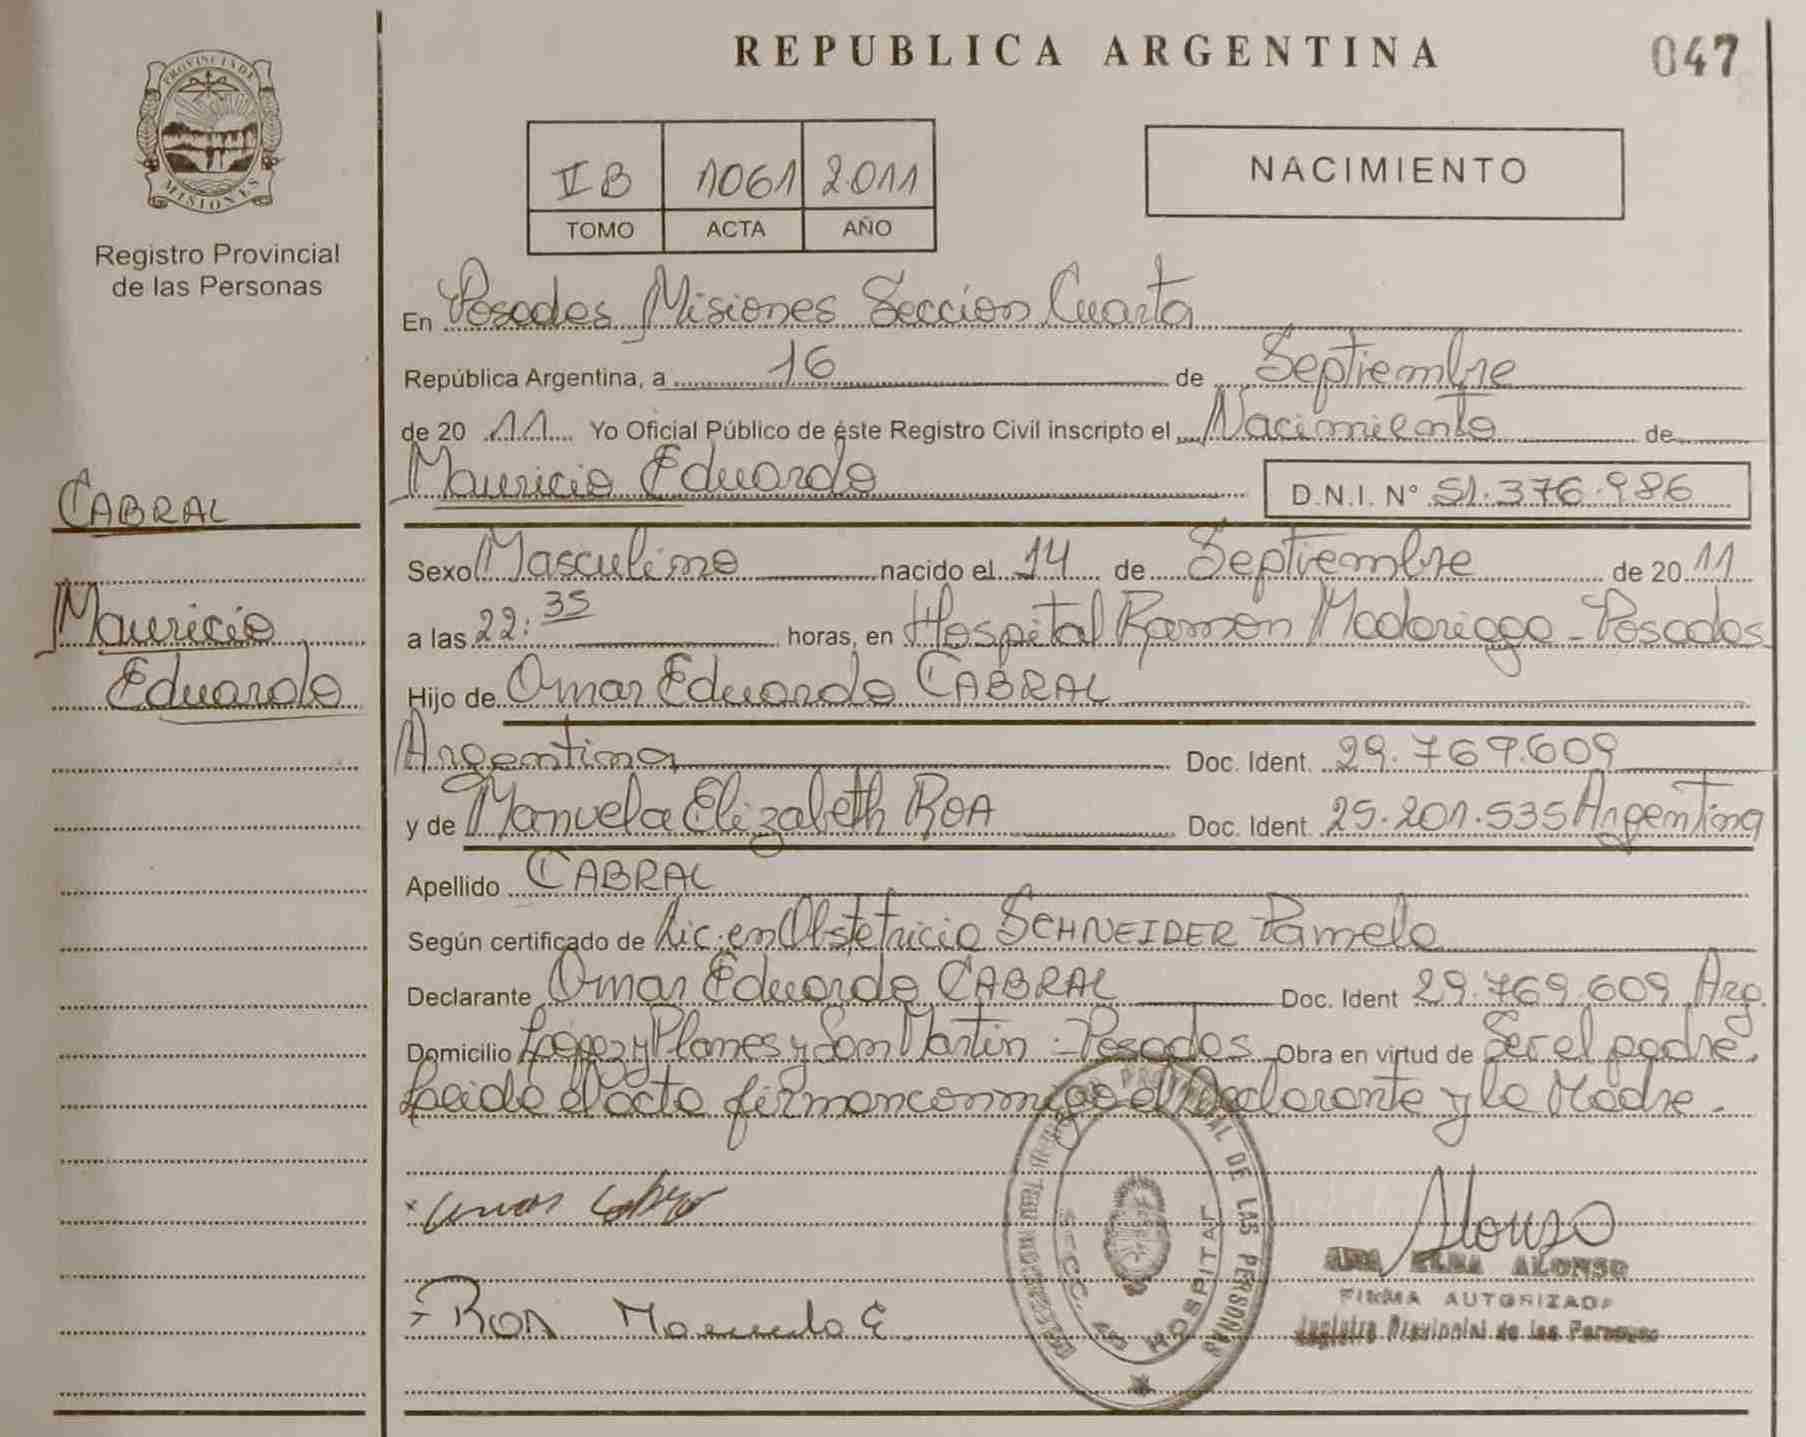 REPUBLICA ARGENTINA
047
PROVINCIA DE
MISIONES
Registro Provincial
de las Personas
II B 1061 2011
TOMO ACTA AÑO
NACIMIENTO
En Posadas Misiones Sección Cuarta
República Argentina, a 16 de Septiembre
de 20 11 Yo Oficial Público de éste Registro Civil inscripto el Nacimiento de
Mauricio Eduardo D.N.I. Nº 51.376.986
CABRAL
Mauricio
Eduardo
Sexo Masculino nacido el 14 de Septiembre de 20 11
a las 22:35 horas, en Hospital Ramon Madariaga - Posadas
Hijo de Omar Eduardo CABRAL
Argentina Doc. Ident. 29.769.609
y de Manuela Elizabeth ROA Doc. Ident. 25.201.535 Argentina
Apellido CABRAL
Según certificado de Lic. en Obstetricia SCHNEIDER Pamela
Declarante Omar Eduardo CABRAL Doc. Ident 29.769.609 Arg.
Domicilio López y Planes y San Martin - Posadas Obra en virtud de Ser el padre.
Leida el acta firman conmigo el Declarante y la Madre.
PROVINCIAL DE LAS PERSONAS
SECC. 4º HOSPITAL
Alonso
ANA ELBA ALONSO
FIRMA AUTORIZADA
Registro Provincial de las Personas
ROA Manuela E.